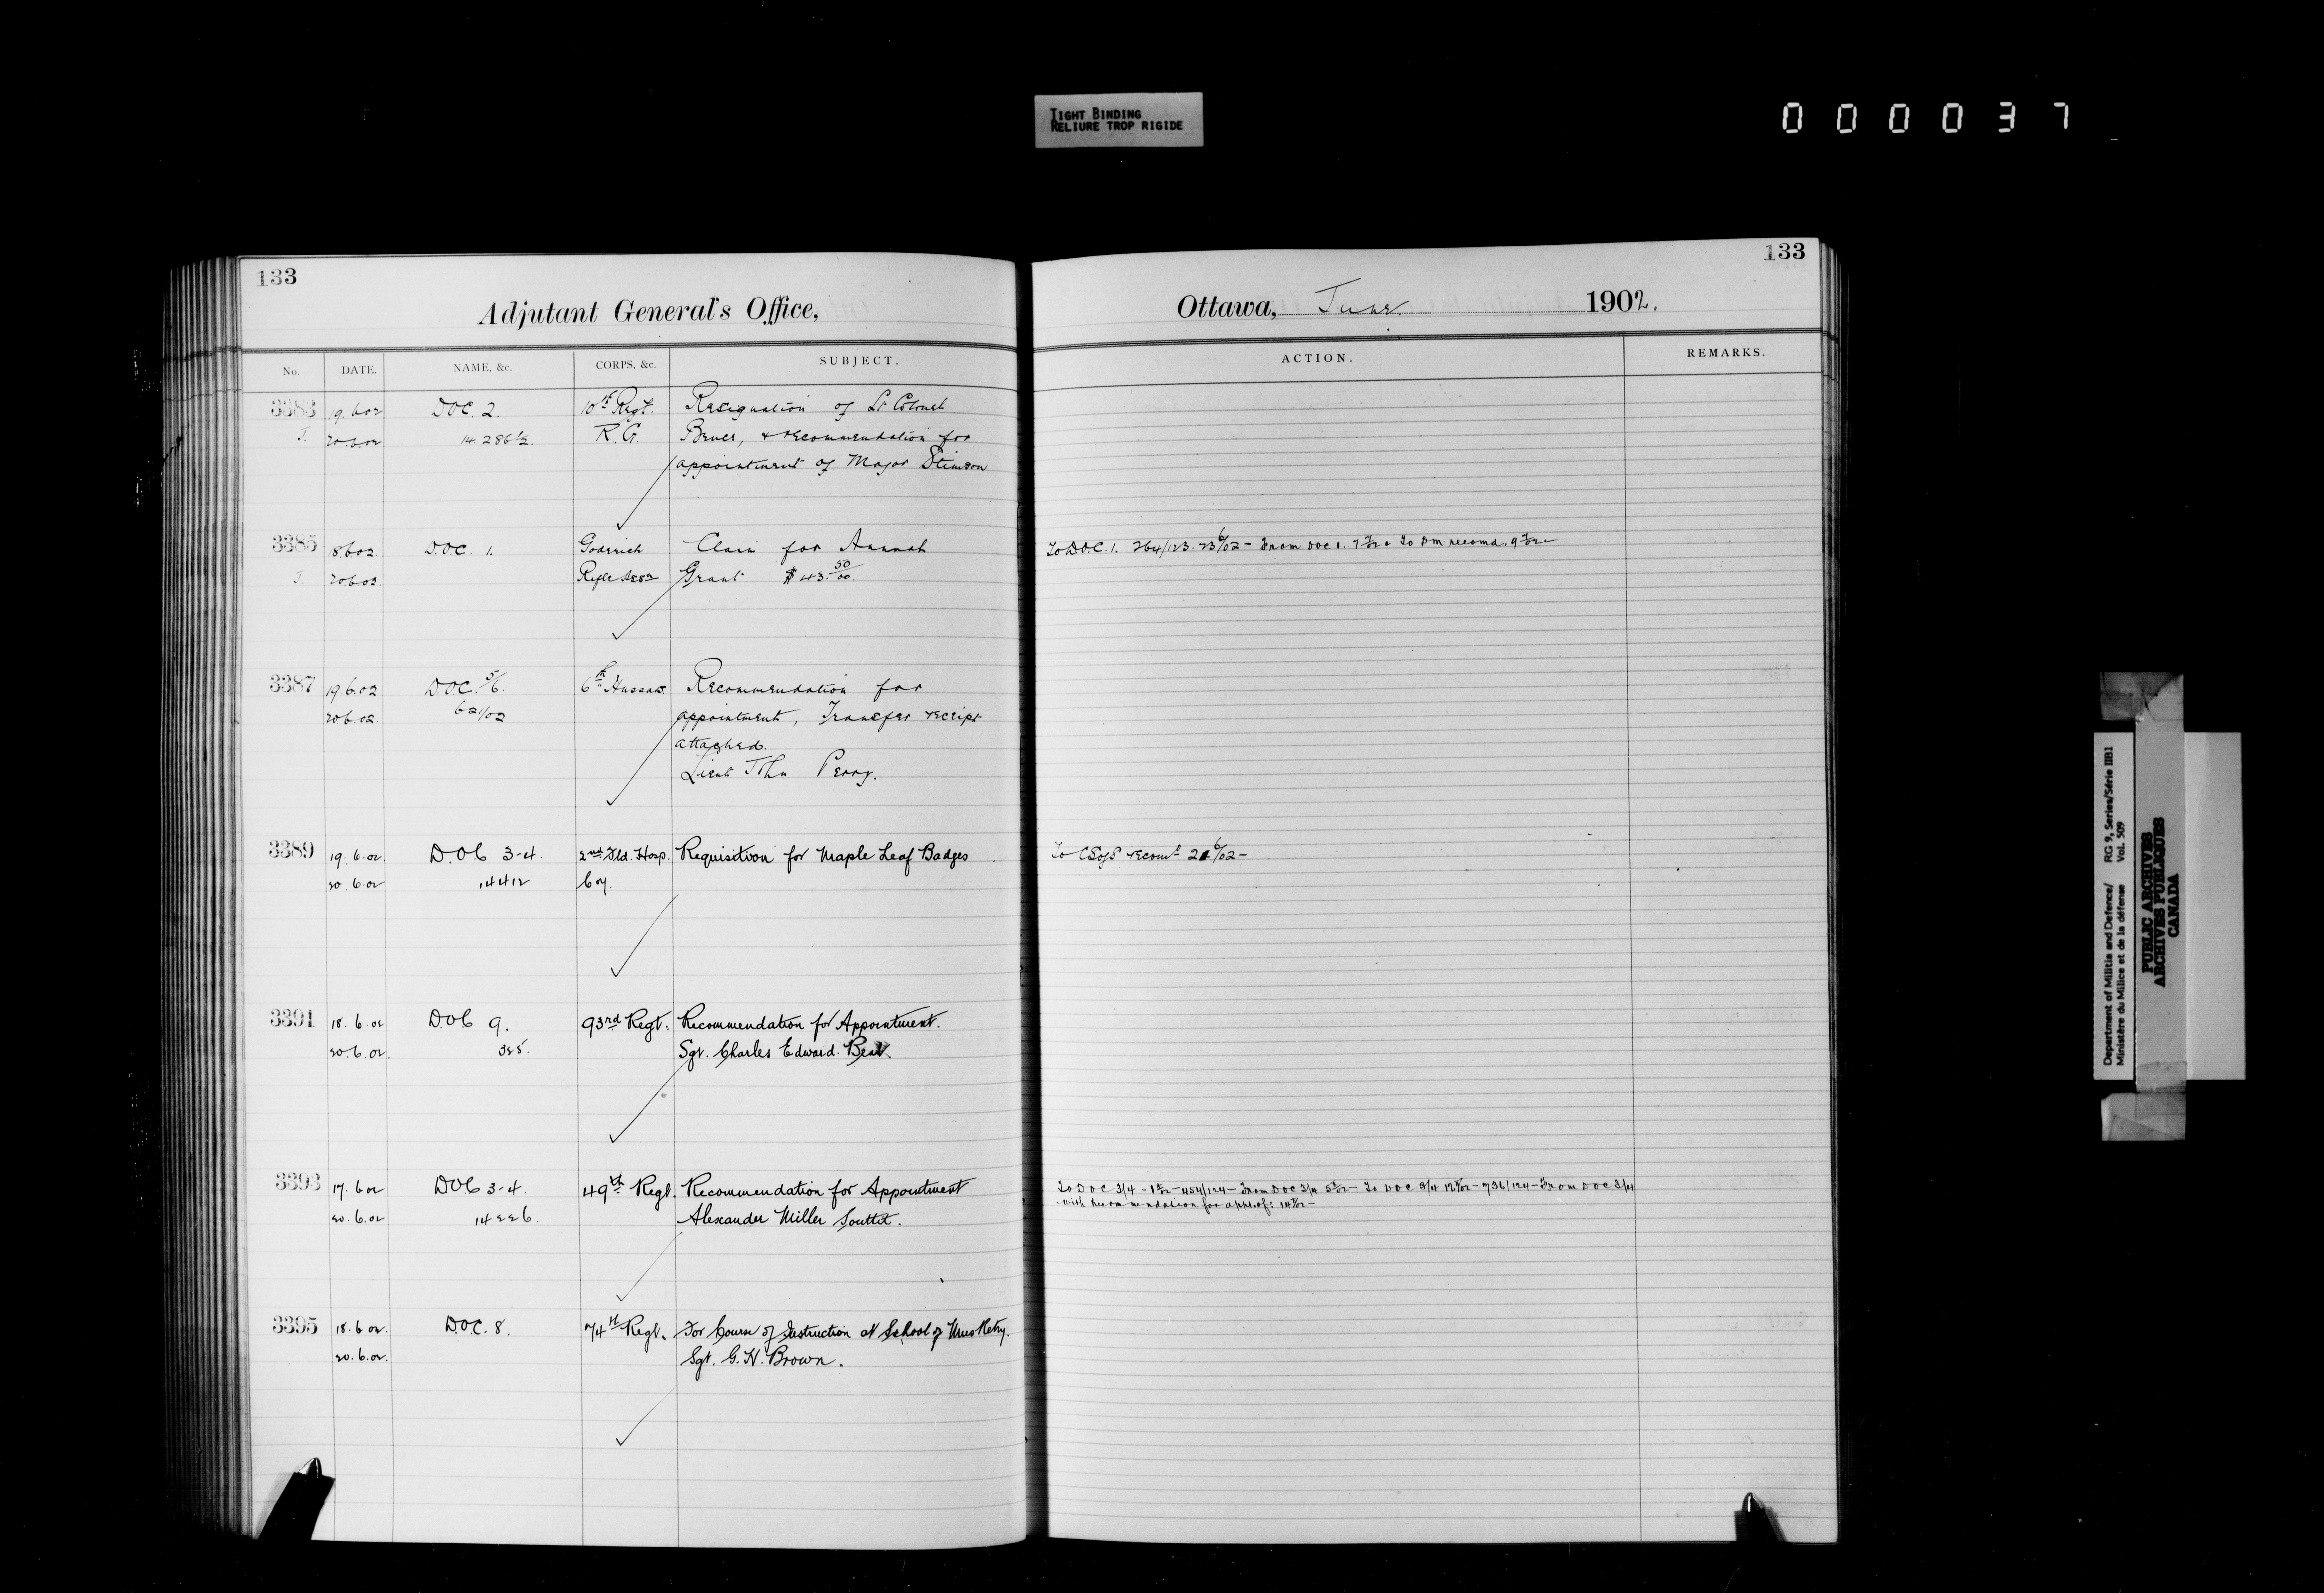 TIGHT BINDING
RELIURE TROP RIGIDE
000037
133
Adjutant General's Office,
No. DATE. NAME, &c. CORPS, &c. SUBJECT.
3383 19.6.02 D.O.C. 2. 10th Regt. Resignation of Lt Colonel
J. 20.6.02 14286 R.G. Bruce, & recommendation for
appointment of Major Stimson
3385 18.6.02 D.O.C. 1. Goderich Claim for Annual
J. 20.6.02 Rifle Assn Grant $43.50/00.
3387 19.6.02 D.O.C. 5/6. 6th Hussars. Recommendation for
20.6.02 621/02 appointment, Transfer receipt
attached.
Lieut John Perry.
3389 19.6.02 D.O.C 3-4. 2nd Fld. Hosp. Requisition for Maple Leaf Badges
20.6.02 14412 Coy.
3391 18.6.02 D.O.C 9. 93rd Regt. Recommendation for Appointment.
20.6.02. 325. Sgt. Charles Edward
3393 17.6.02 D.O.C 3-4. 49th Regt. Recommendation for Appointment
20.6.02 14226. Alexander Miller Souttit.
3395 18.6.02. D.O.C. 8. 74th Regt. For Course of Instruction at School of Musketry.
20.6.02. Sgt. G.H. Brown.
133
Ottawa, June 1902.
ACTION. REMARKS.
To D.O.C. 1. 264/123. 23 6/02 - From DOC 1. 7 7/02 - To DM recomd. 9 7/02 -
To CSofS 6/02 -
To DOC 3/4 - 454/124 - From DOC 3/4 - To DOC 3/4 - 736/124 - From DOC 3/4
with recommendation for
Department of Militia and Defence/ RG 9, Series/Série IIB1
Ministère du Milice et de la défense Vol. 509
PUBLIC ARCHIVES
ARCHIVES PUBLIQUES
CANADA